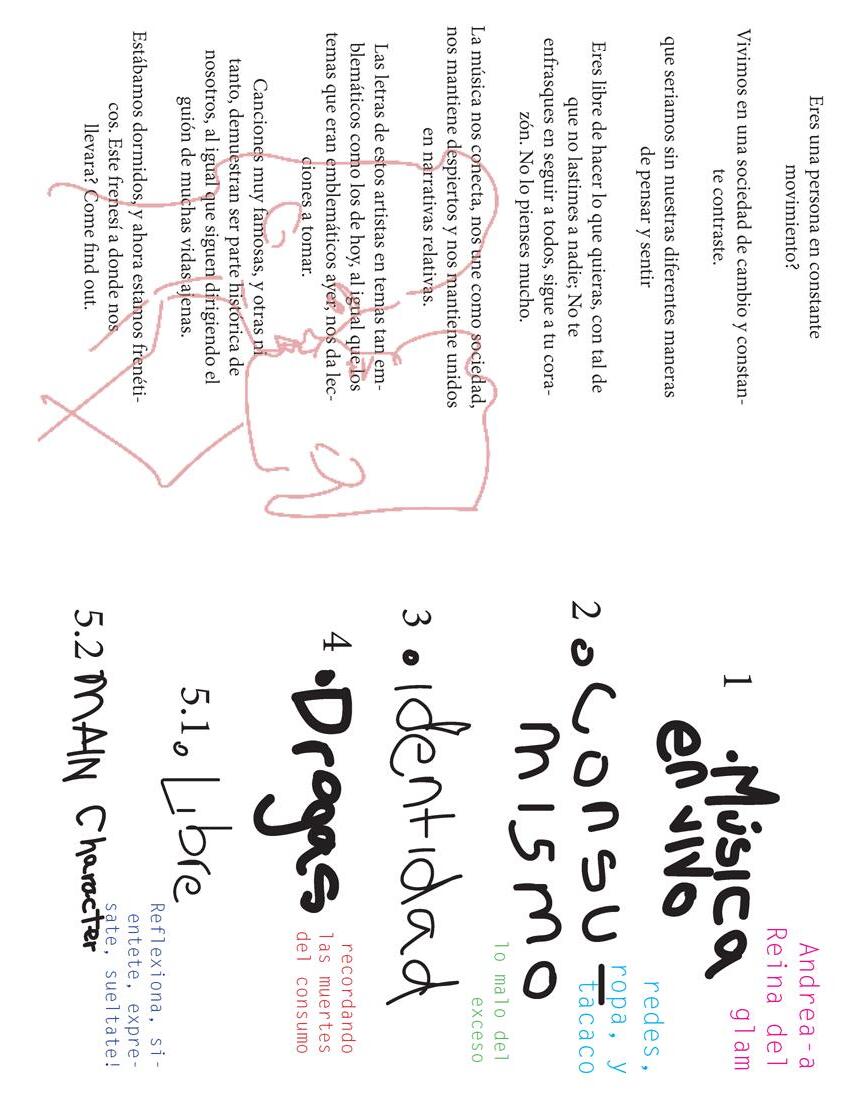 Eres una persona en constante
movimiento?
Vivimos en una sociedad de cambio y constan-
te contraste.
que seriamos sin nuestras diferentes maneras
de pensar y sentir
Eres libre de hacer lo que quieras, con tal de
que no lastimes a nadie; No te
enfrasques en seguir a todos, sigue a tu cora-
zón. No lo pienses mucho.
La música nos conecta, nos une como sociedad,
nos mantiene despiertos y nos mantiene unidos
en narrativas relativas.
Las letras de estos artistas en temas tan em-
blemáticos como los de hoy, al igual que los
temas que eran emblemáticos ayer, nos da lec-
ciones a tomar.
Canciones muy famosas, y otras ni
tanto, demuestran ser parte histórica de
nosotros, al igual que siguen dirigiendo el
guión de muchas vidas ajenas.
Estábamos dormidos, y ahora estamos frenéti-
cos. Este frenesí a donde nos
llevara? Come find out.
1 .Música
en vivo
Andrea-a
Reina del
glam
2. Consu-
mismo
redes,
ropa, y
tacaco
3. identidad
lo malo del
exceso
4 .Drogas
recordando
las muertes
del consumo
5.1. Libre
5.2 MAIN Character
Reflexiona, si-
entete, expre-
sate, sueltate!